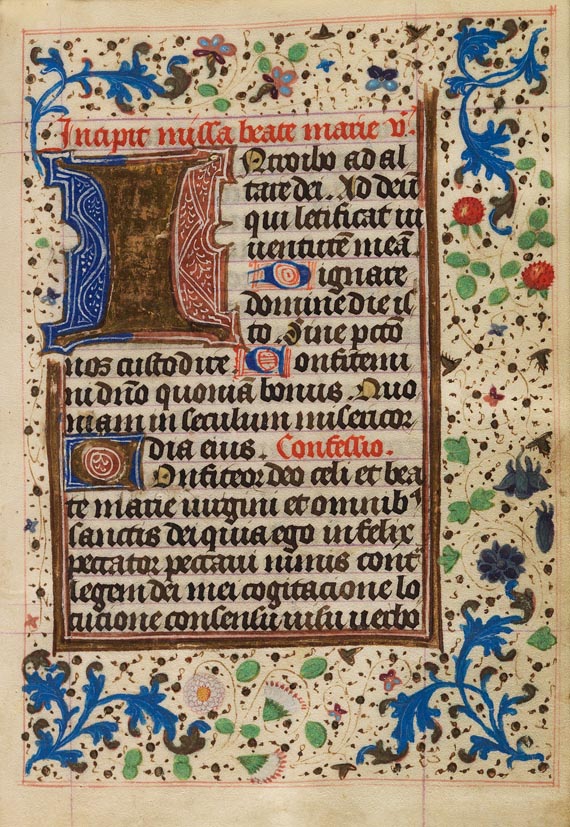 Incipit missa beate marie v.
Introibo ad al
tare dei. Ad deū
qui letificat iu
uentutē meā
Dignare
domine die is
to. Sine pctō
nos custodire. Confitemi
ni dño quoniā bonus. Quo
niam in seculum misericor
dia eius. Confessio.
Confiteor deo celi et bea
te marie uirgini et omnibꝰ
sanctis dei quia ego infelix
peccator peccaui nimis cont᷑
legem dei mei cogitacione lo
cucione consensu uisu uerbo